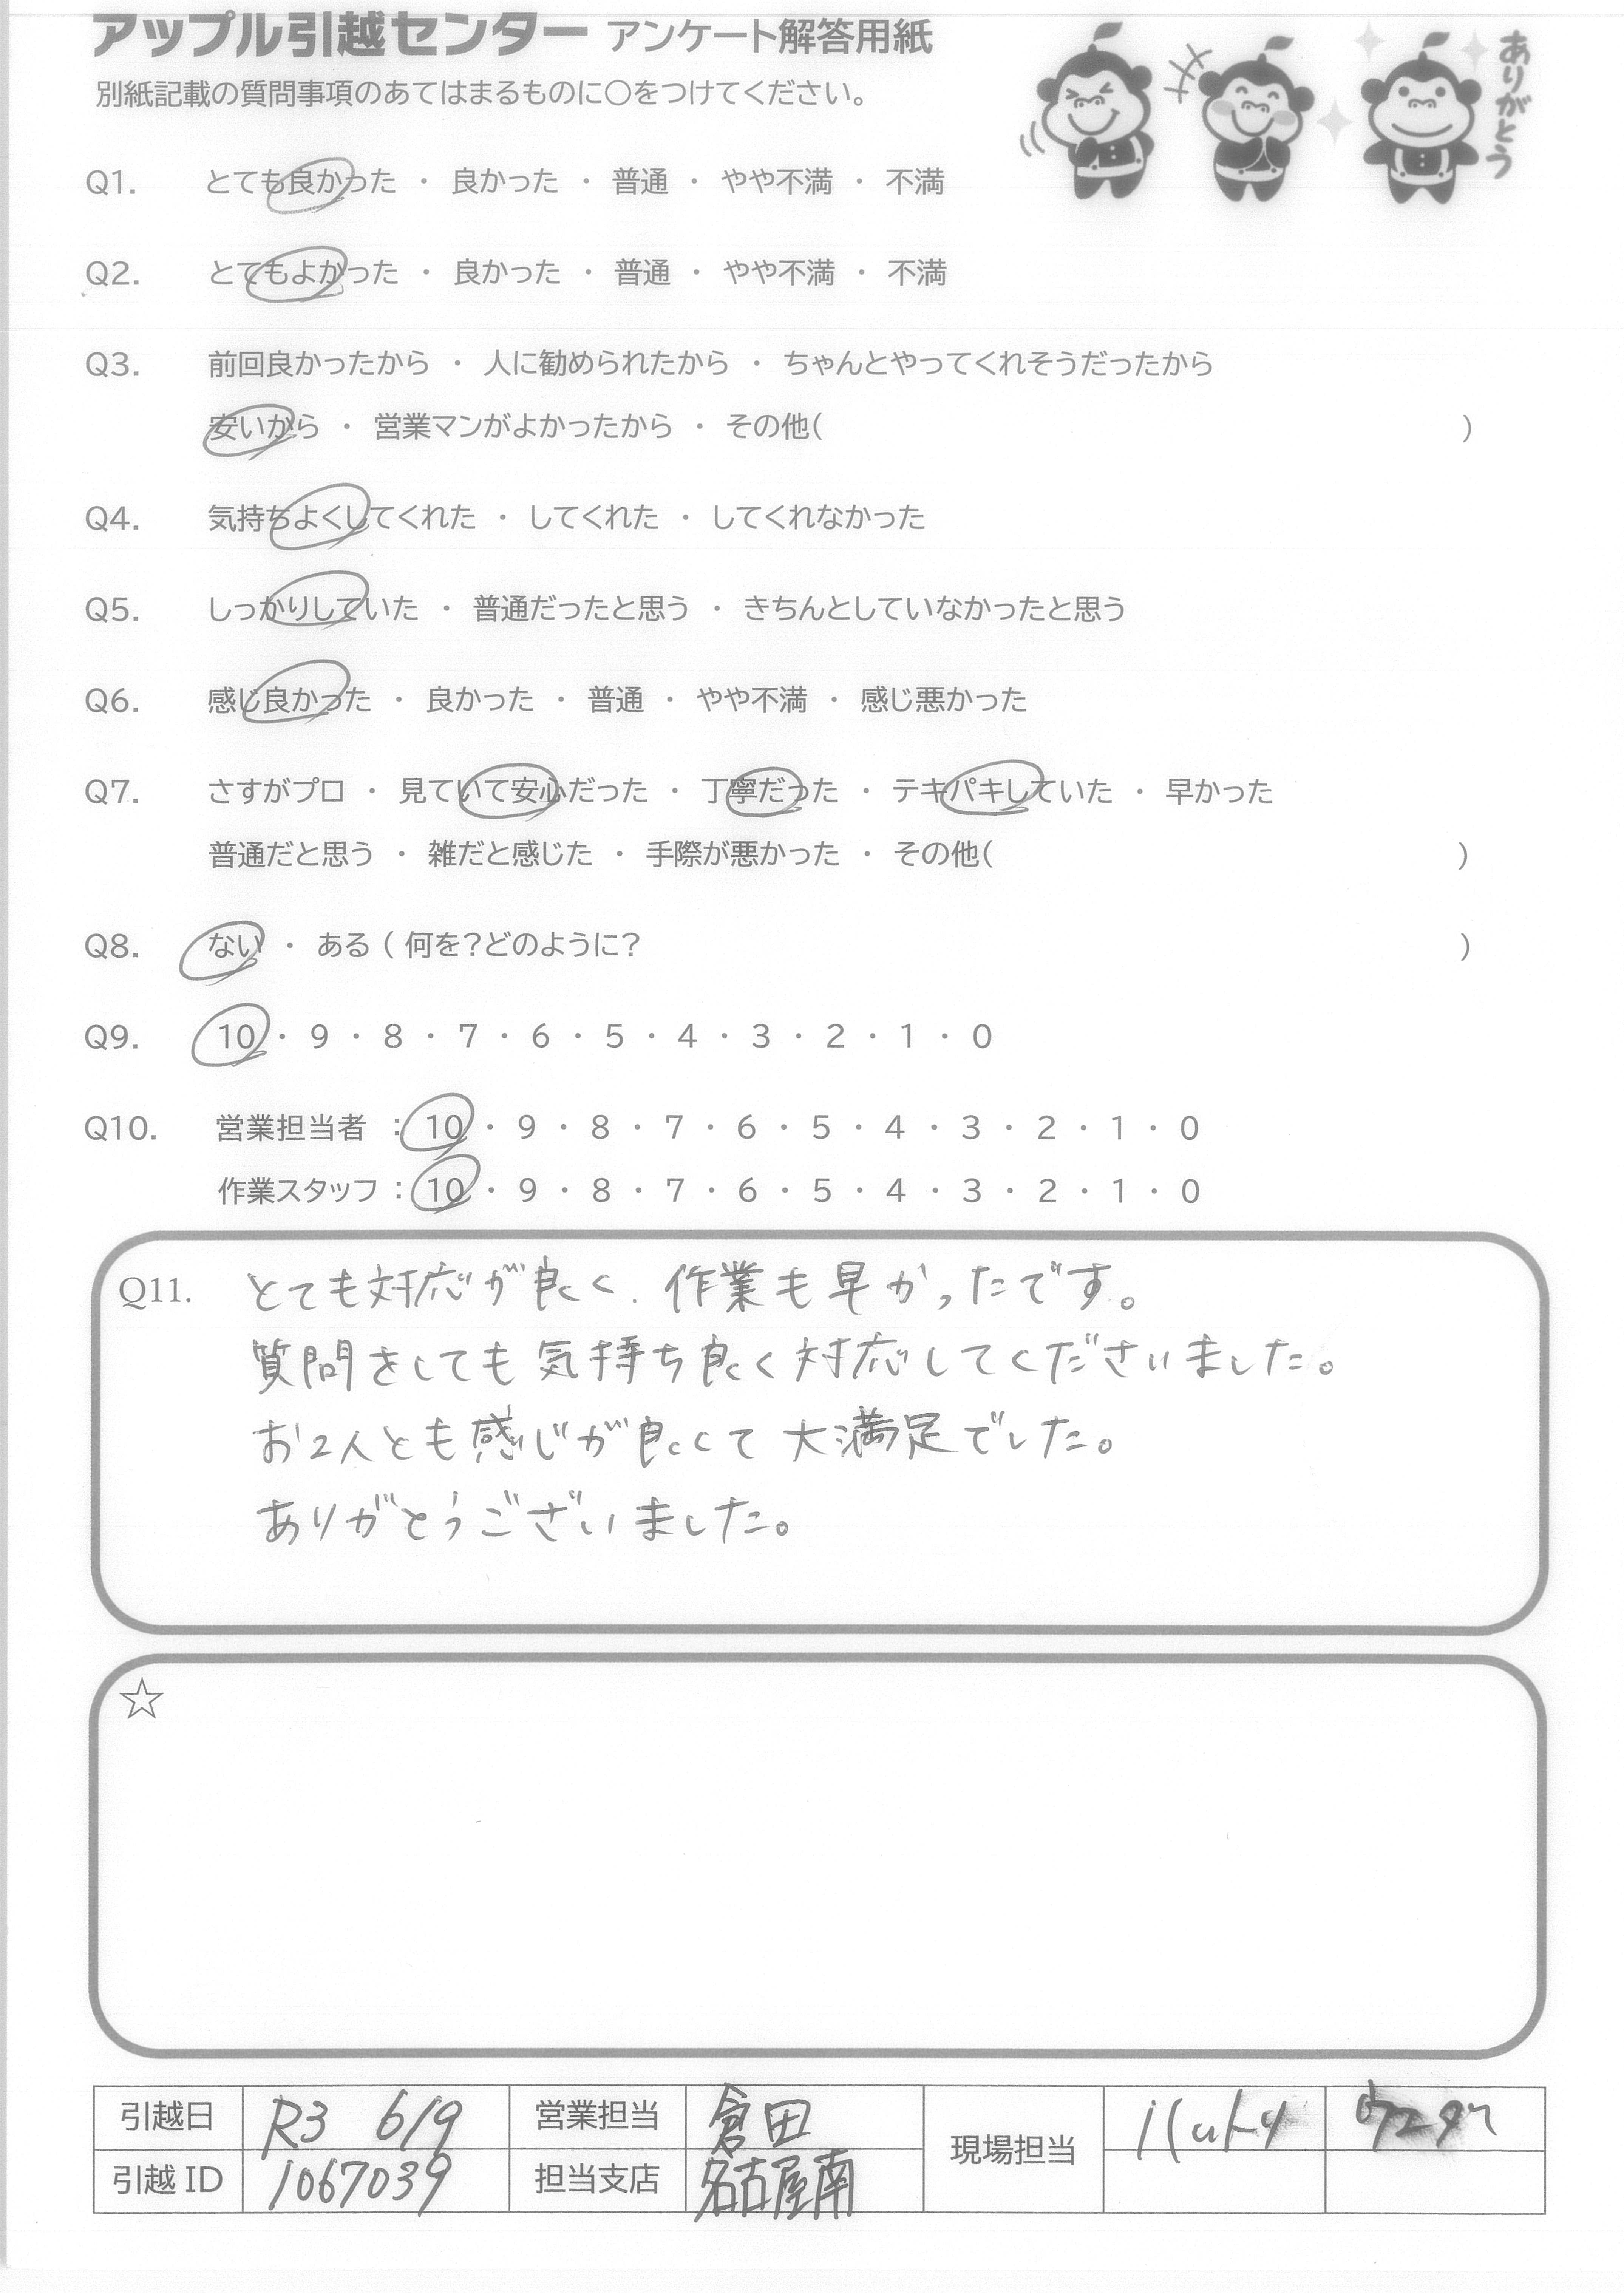 アップル引越センター アンケート解答用紙
ありがとう
別紙記載の質問事項のあてはまるものに〇をつけてください。
Q1. とても良かった ・ 良かった ・ 普通 ・ やや不満 ・ 不満
Q2. とてもよかった ・ 良かった ・ 普通 ・ やや不満 ・ 不満
Q3. 前回良かったから ・ 人に勧められたから ・ ちゃんとやってくれそうだったから
安いから ・ 営業マンがよかったから ・ その他( )
Q4. 気持ちよくしてくれた ・ してくれた ・ してくれなかった
Q5. しっかりしていた ・ 普通だったと思う ・ きちんとしていなかったと思う
Q6. 感じ良かった ・ 良かった ・ 普通 ・ やや不満 ・ 感じ悪かった
Q7. さすがプロ ・ 見ていて安心だった ・ 丁寧だった ・ テキパキしていた ・ 早かった
普通だと思う ・ 雑だと感じた ・ 手際が悪かった ・ その他( )
Q8. ない ・ ある ( 何を?どのように? )
Q9. 10 ・ 9 ・ 8 ・ 7 ・ 6 ・ 5 ・ 4 ・ 3 ・ 2 ・ 1 ・ 0
Q10. 営業担当者 : 10 ・ 9 ・ 8 ・ 7 ・ 6 ・ 5 ・ 4 ・ 3 ・ 2 ・ 1 ・ 0
作業スタッフ : 10 ・ 9 ・ 8 ・ 7 ・ 6 ・ 5 ・ 4 ・ 3 ・ 2 ・ 1 ・ 0
Q11. とても対応が良く、作業も早かったです。
質問をしても気持ち良く対応してくださいました。
お2人とも感じが良くて大満足でした。
ありがとうございました。
☆
引越日 R3 6/9 営業担当 倉田 現場担当
引越ID 1067039 担当支店 名古屋南